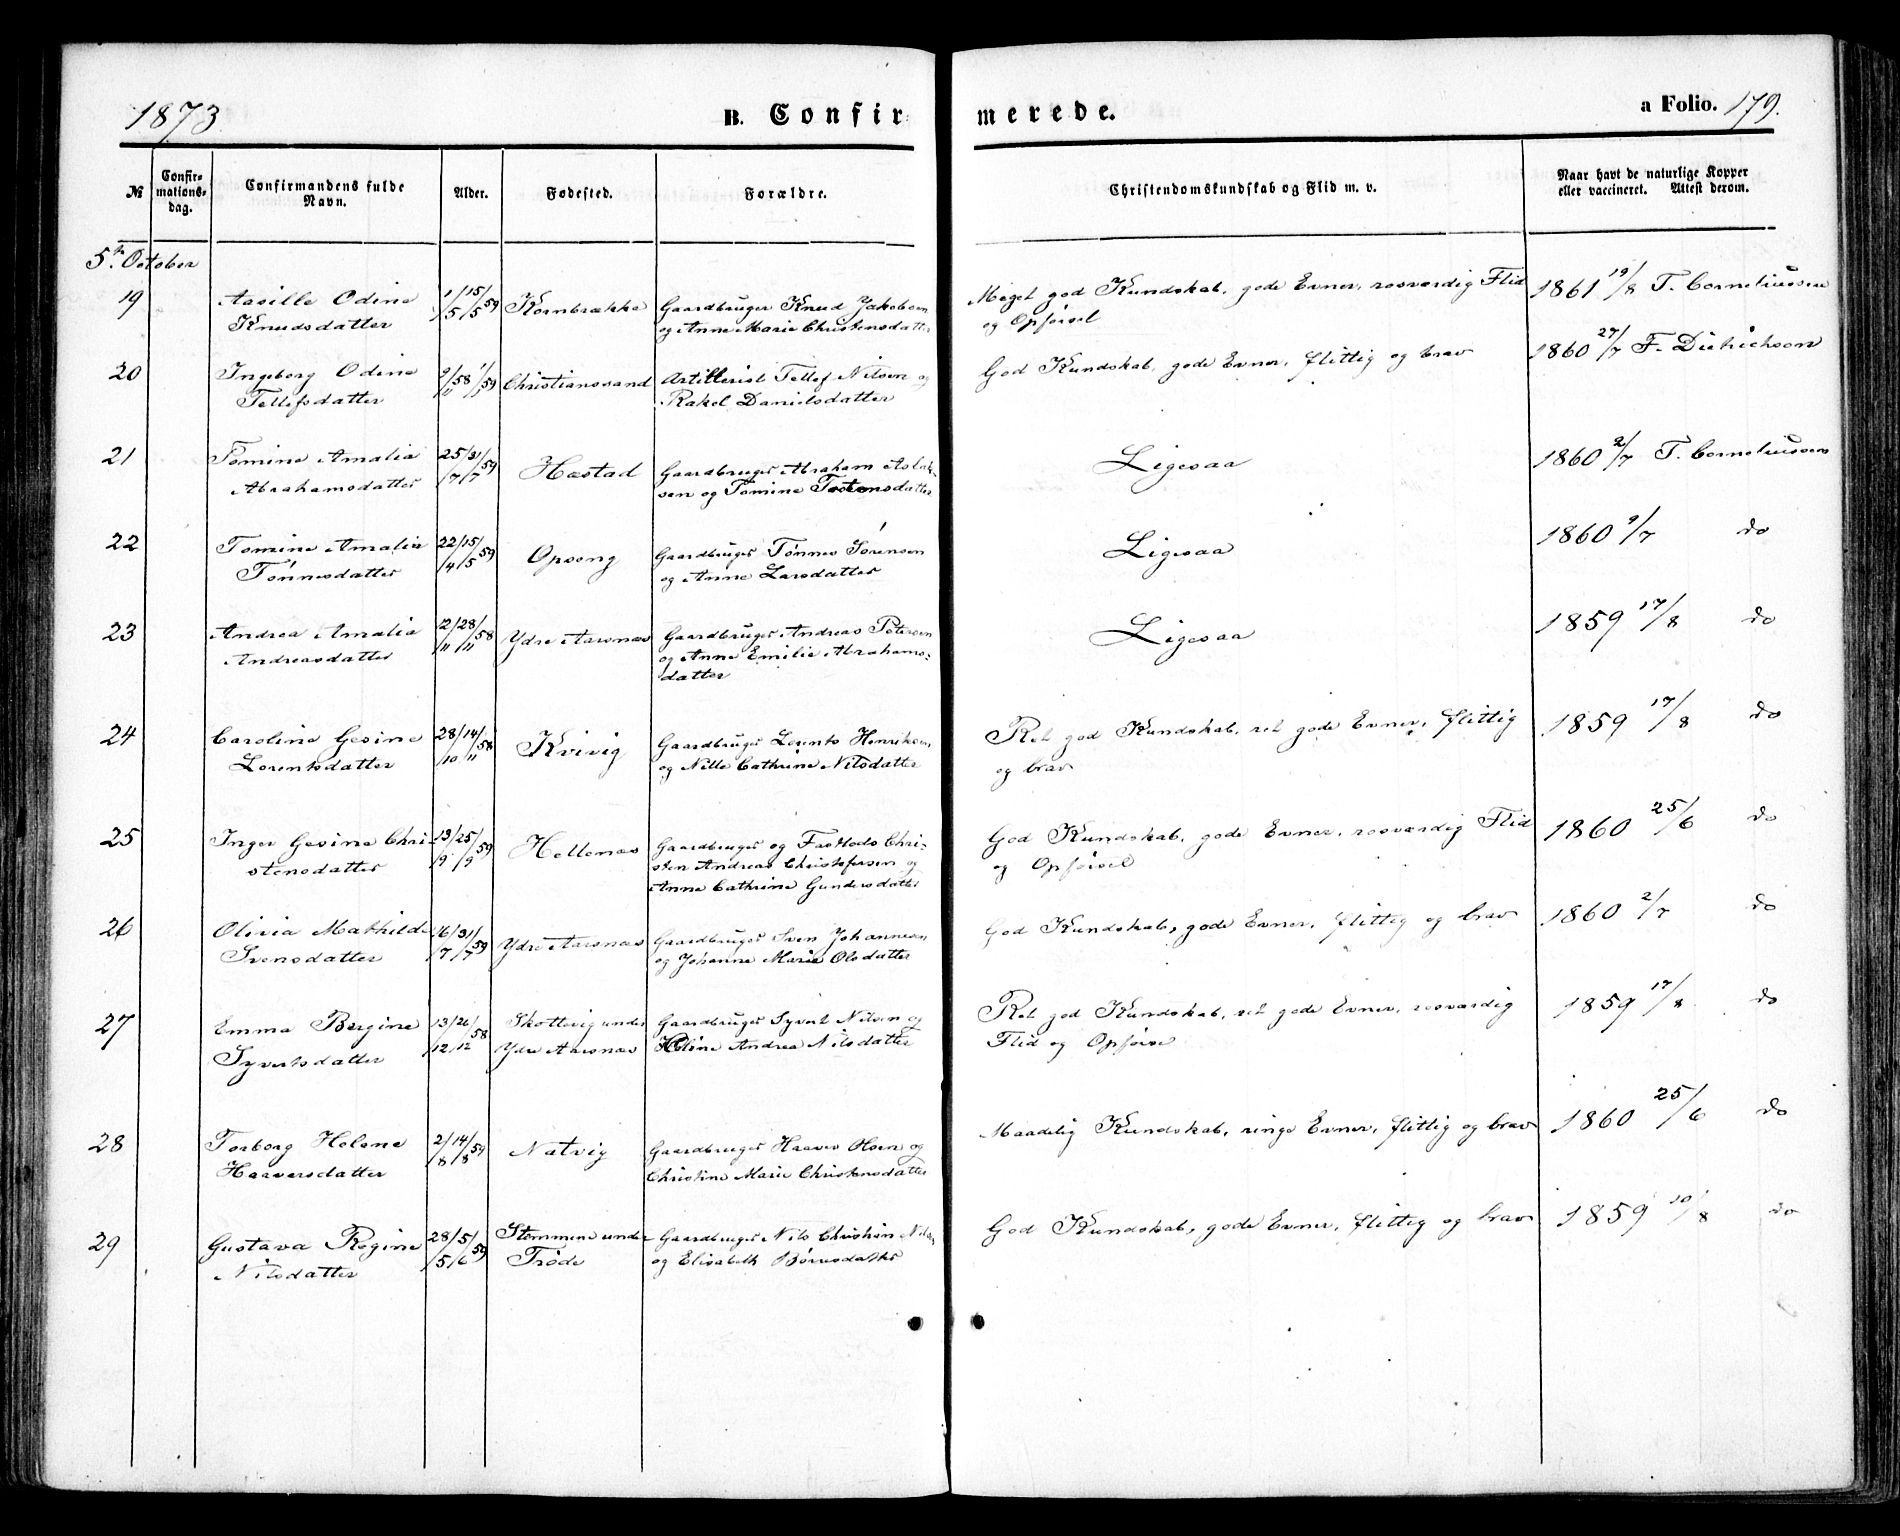 1873
B. Confirmerede.
a Folio. 179.
№
Confirmationsdag.
Confirmandens fulde Navn.
Alder.
Fødested.
Forældre.
Christendomskundskab og Flid m. v.
Naar havt de naturlige Kopper eller vaccineret. Attest derom.
5te October
19 Aasille Odine Knudsdatter 1/5 15/5 59 Kornbrække Gaardbruger Knud Jakobsen og Anne Marie Christensdatter Meget god Kundskab, gode Evner, rosværdig Flid og Opførsel 1861 19/8 T. Corneliussen
20 Ingeborg Odine Tellefsdatter 9/11 58 1/1 59 Christianssand Artillerist Tellef Nilsen og Rakel Danielsdatter God Kundskab, gode Evner, flittig og brav 1860 27/7 F. Dietrichson
21 Tomine Amalia Abrahamsdatter 25/7 31/7 59 Hæstad Gaardbruger Abraham Aslaksen og Tomine Tostensdatter Ligesaa 1860 2/7 T. Corneliussen
22 Tomine Amalia Tønnesdatter 22/4 15/5 59 Opsong Gaardbruger Tønnes Sørensen og Anne Larsdatter Ligesaa 1860 9/7 do
23 Andrea Amalia Andreasdatter 12/11 28/11 58 Ydre Aarsnæs Gaardbruger Andreas Petersen og Anne Emilie Abrahamsdatter Ligesaa 1859 17/8 do
24 Caroline Gesine Lorentsdatter 28/10 14/11 58 Kvivig Gaardbruger Lorents Henriksen og Nille Cathrine Nilsdatter Ret god Kundskab, ret gode Evner, flittig og brav 1859 17/8 do
25 Inger Gesine Christensdatter 13/9 25/9 59 Hellenæs Gaardbruger og Fastlods Christen Andreas Christofersen og Anne Cathrine Gundersdatter God Kundskab, gode Evner, rosværdig Flid og Opførsel 1860 25/6 do
26 Olivia Mathilde Svensdatter 16/7 31/7 59 Ydre Aarsnæs Gaardbruger Sven Johannesen og Johanne Marie Olsdatter God Kundskab, gode Evner, flittig og brav 1860 2/7 do
27 Emma Bergine Syvertsdatter 13/12 26/12 58 Skottevig under Ydre Aarsnæs Gaardbruger Syvert Nilsen og Helene Andrea Nilsdatter Ret god Kundskab, ret gode Evner, rosværdig Flid og Opførsel 1859 17/8 do
28 Torborg Helene Haaversdatter 2/8 14/8 59 Natvig Gaardbruger Haaver Olsen og Christine Marie Christensdatter Maadelig Kundskab, ringe Evner, flittig og brav 1860 25/6 do
29 Gustava Regine Nilsdatter 28/5 5/6 59 Stemmene under Trøde Gaardbruger Nils Christian Nilsen og Elisabeth Børresdatter God Kundskab, gode Evner, flittig og brav 1859 10/8 do